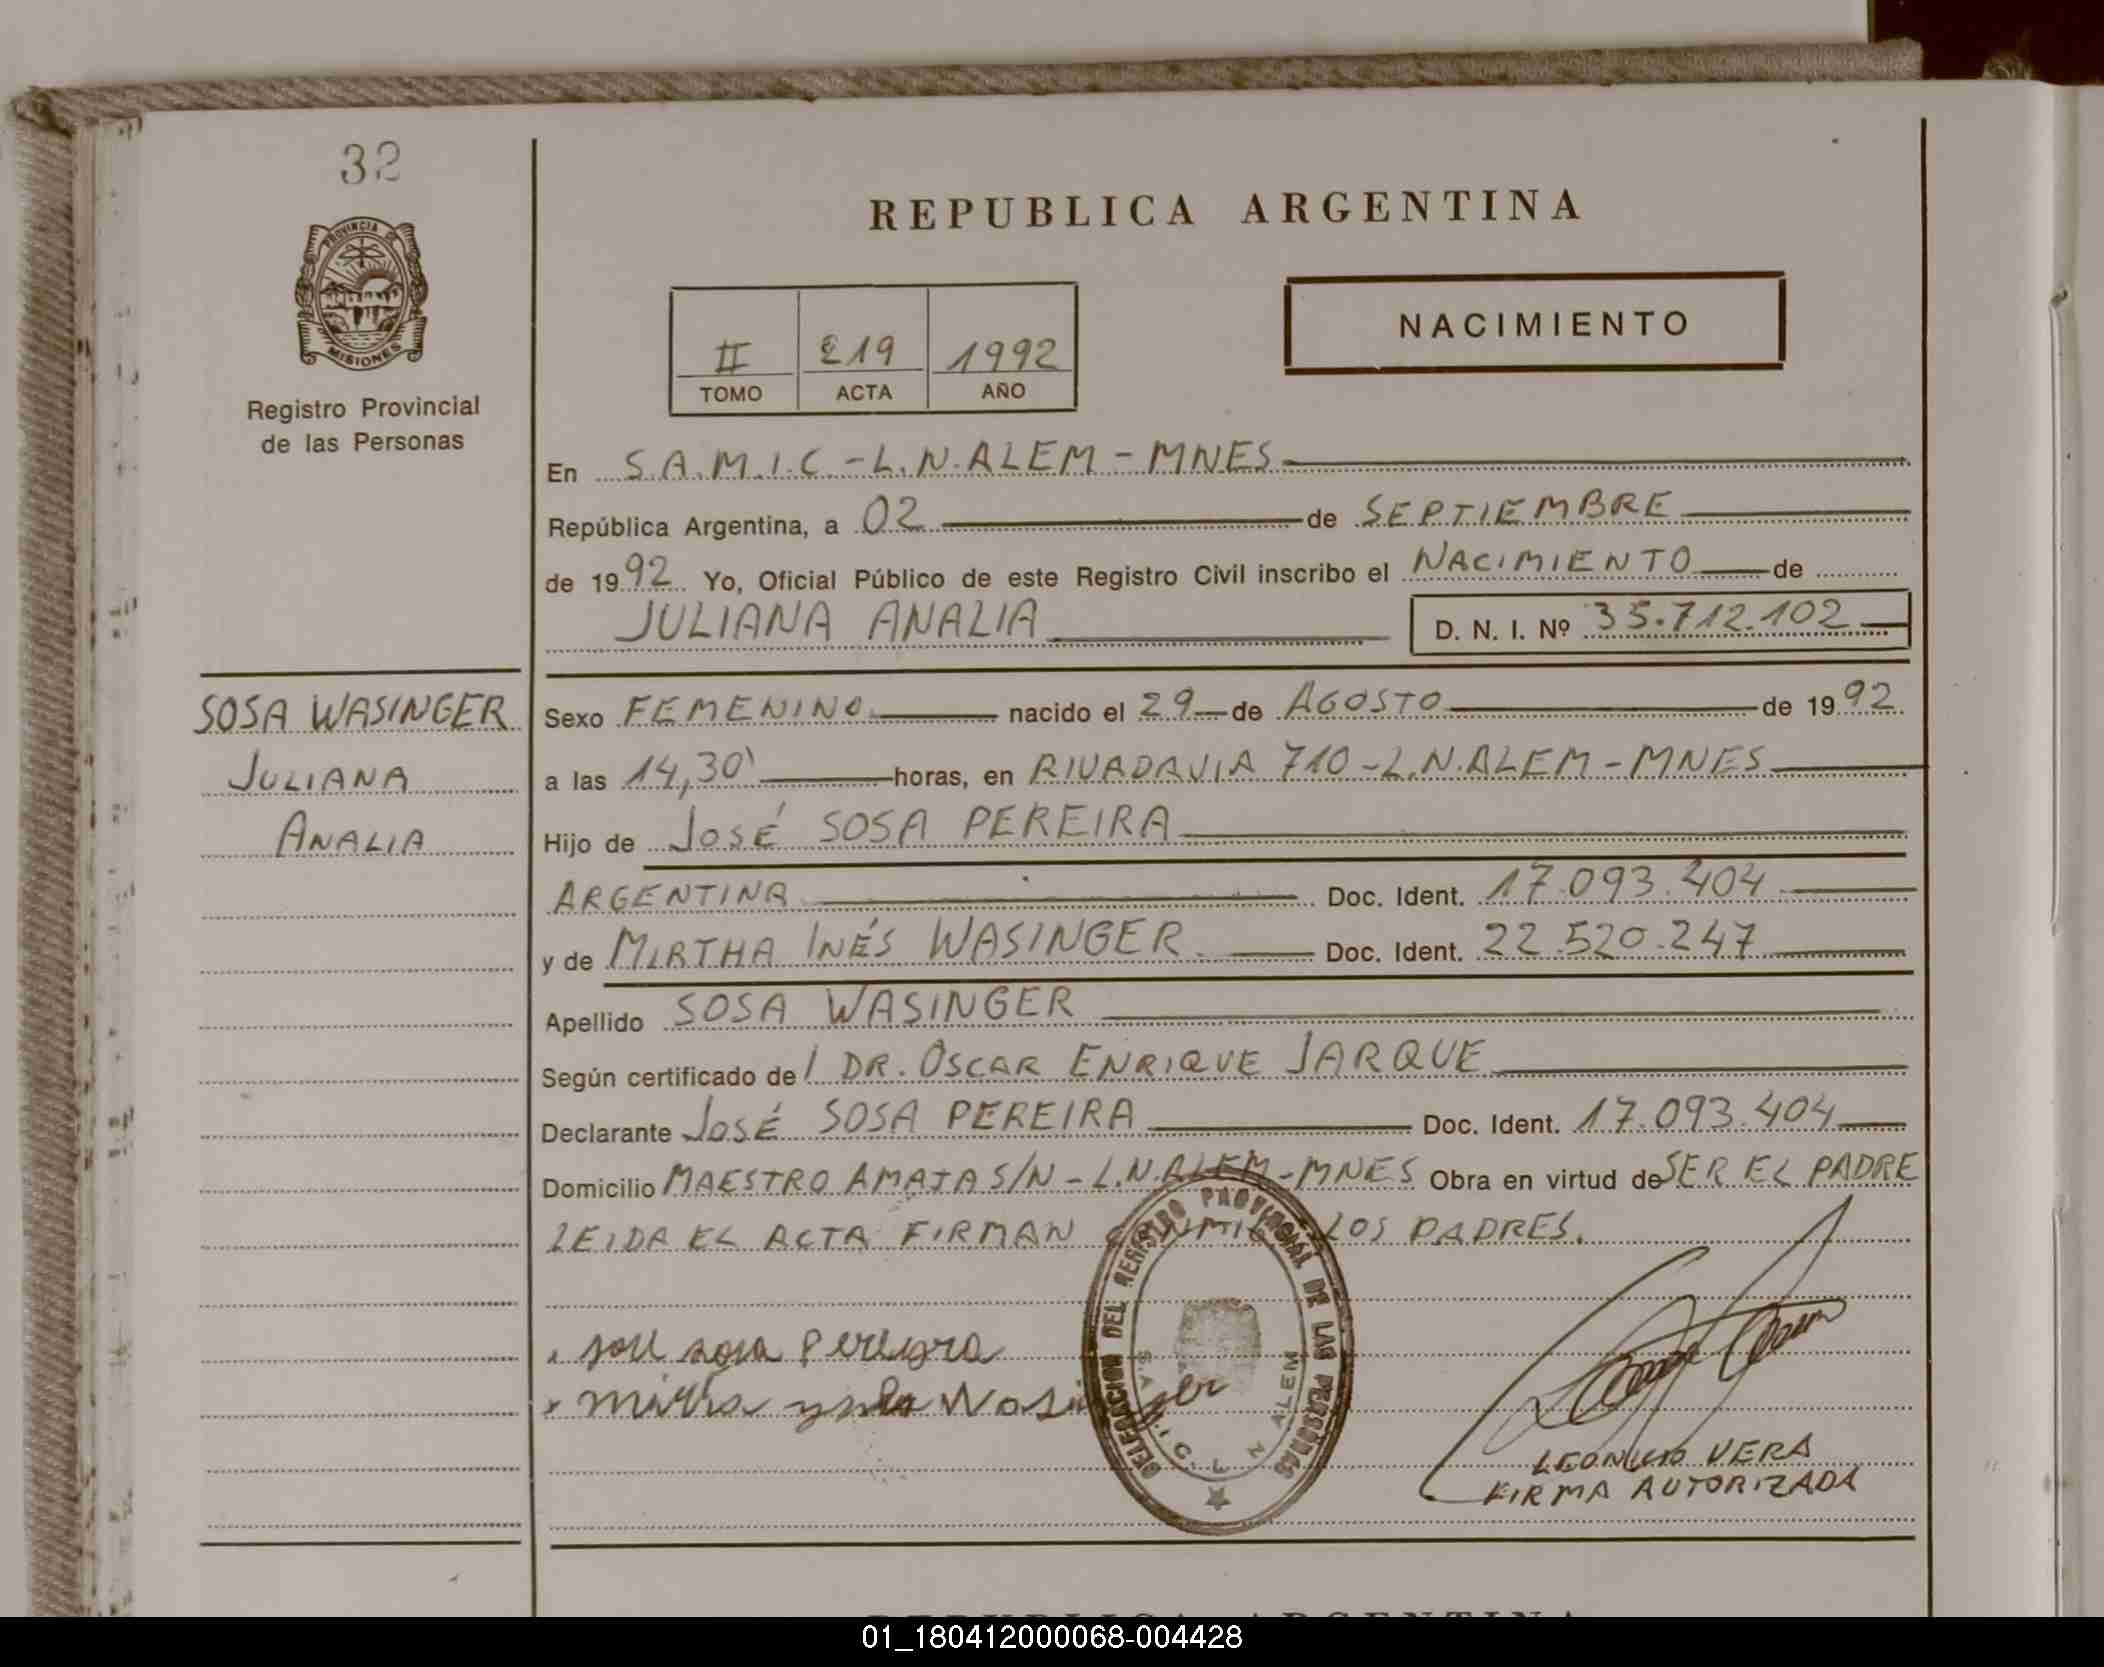 32
PROVINCIA DE
MISIONES
Registro Provincial
de las Personas
REPUBLICA ARGENTINA
II 219 1992
TOMO ACTA AÑO
NACIMIENTO
En S.A.M.I.C.-L.N.ALEM-MNES
República Argentina, a 02 de SEPTIEMBRE
de 1992 Yo, Oficial Público de este Registro Civil inscribo el NACIMIENTO de
JULIANA ANALIA D. N. I. Nº 35.712.102
SOSA WASINGER
JULIANA
ANALIA
Sexo FEMENINO nacido el 29 de AGOSTO de 1992
a las 14,30' horas, en RIVADAVIA 710-L.N.ALEM-MNES
Hijo de JOSÉ SOSA PEREIRA
ARGENTINA Doc. Ident. 17.093.404
y de MIRTHA INÉS WASINGER Doc. Ident. 22.520.247
Apellido SOSA WASINGER
Según certificado de l DR. OSCAR ENRIQUE JARQUE
Declarante JOSÉ SOSA PEREIRA Doc. Ident. 17.093.404
Domicilio MAESTRO AMAJA S/N - L.N.ALEM-MNES Obra en virtud de SER EL PADRE
LEIDA EL ACTA FIRMAN CONMIGO LOS PADRES.
DELEGACION DEL REGISTRO PROVINCIAL DE LAS PERSONAS
S.A.M.I.C. L N ALEM
sosa Pereyra
LEONCIO VERA
FIRMA AUTORIZADA
REPUBLICA ARGENTINA
01_180412000068-004428